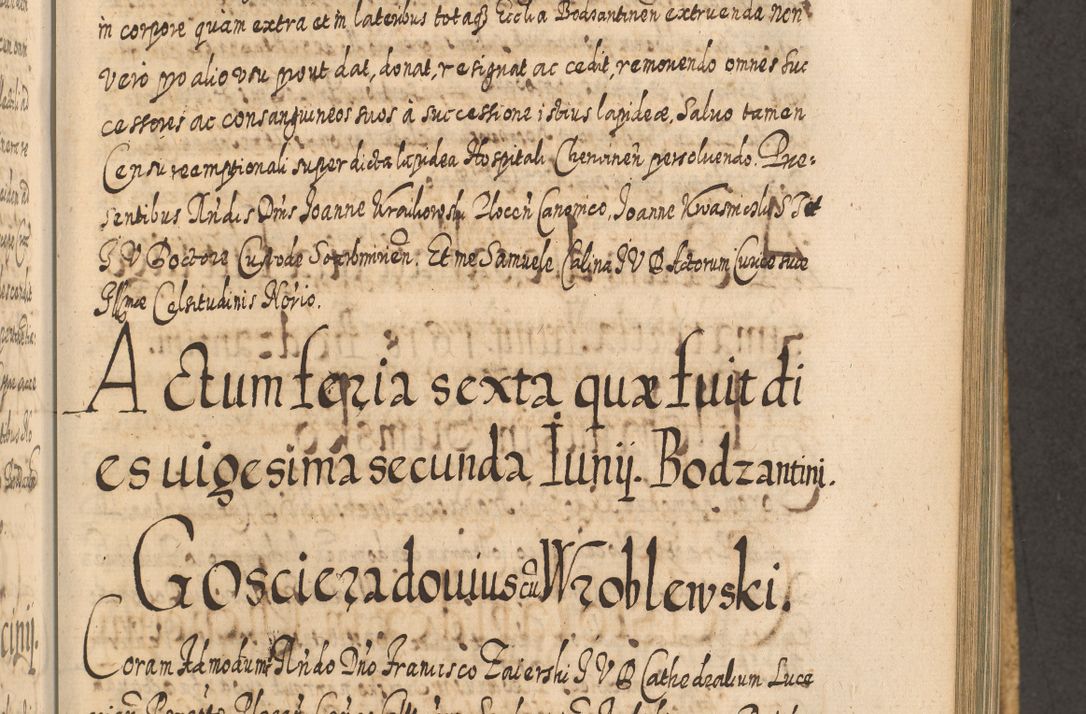 in corpore quam extra et in lateribus totaq3 Ecclia Bodzantinen extruenda non
vero pro alio vsu prout dat, donat, resignat ac cedit, remouendo omnes suc
cessores ac consanguineos suos à successione istius lapideæ, Saluo tamen
Censu reemptionali super dicta lapidea Hospitali persoluendo. Præ:
sentibus Rndis Dnis Joanne Plocen Canonico, Joanne S
J V Doctore Custode Et me Samuele Calina J V D Actorum Curiæ suæ
Illmæ Celsitudinis Nôrio.
Actum feria sexta quæ fuit di
es uigesima secunda Iunij. Bodzantini.
Goscieradouius cū Wroblewski.
Coram Admodum Rndo Dno Francisco Zaierski J V D Cathedralium Luce